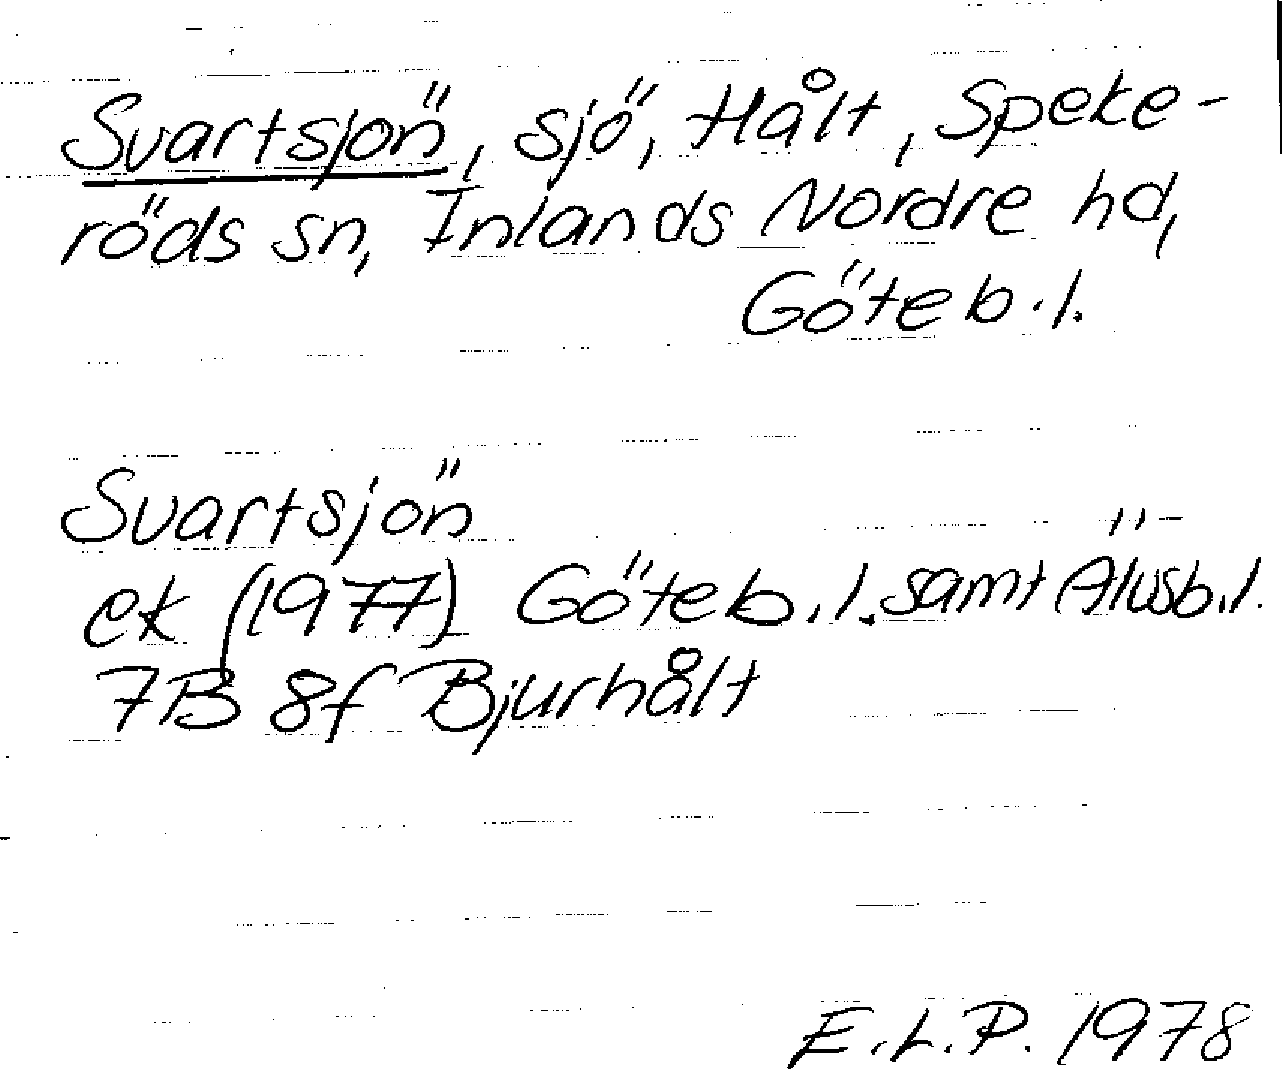 Svartsjön, sjö, Hålt, Speke-
röds sn, Inlands Nordre hd,
Göteb.l.
Svartsjön
ek (1977) Göteb.l. samt Älvsb.l.
7B 8f Bjurhålt
E.L.P. 1978